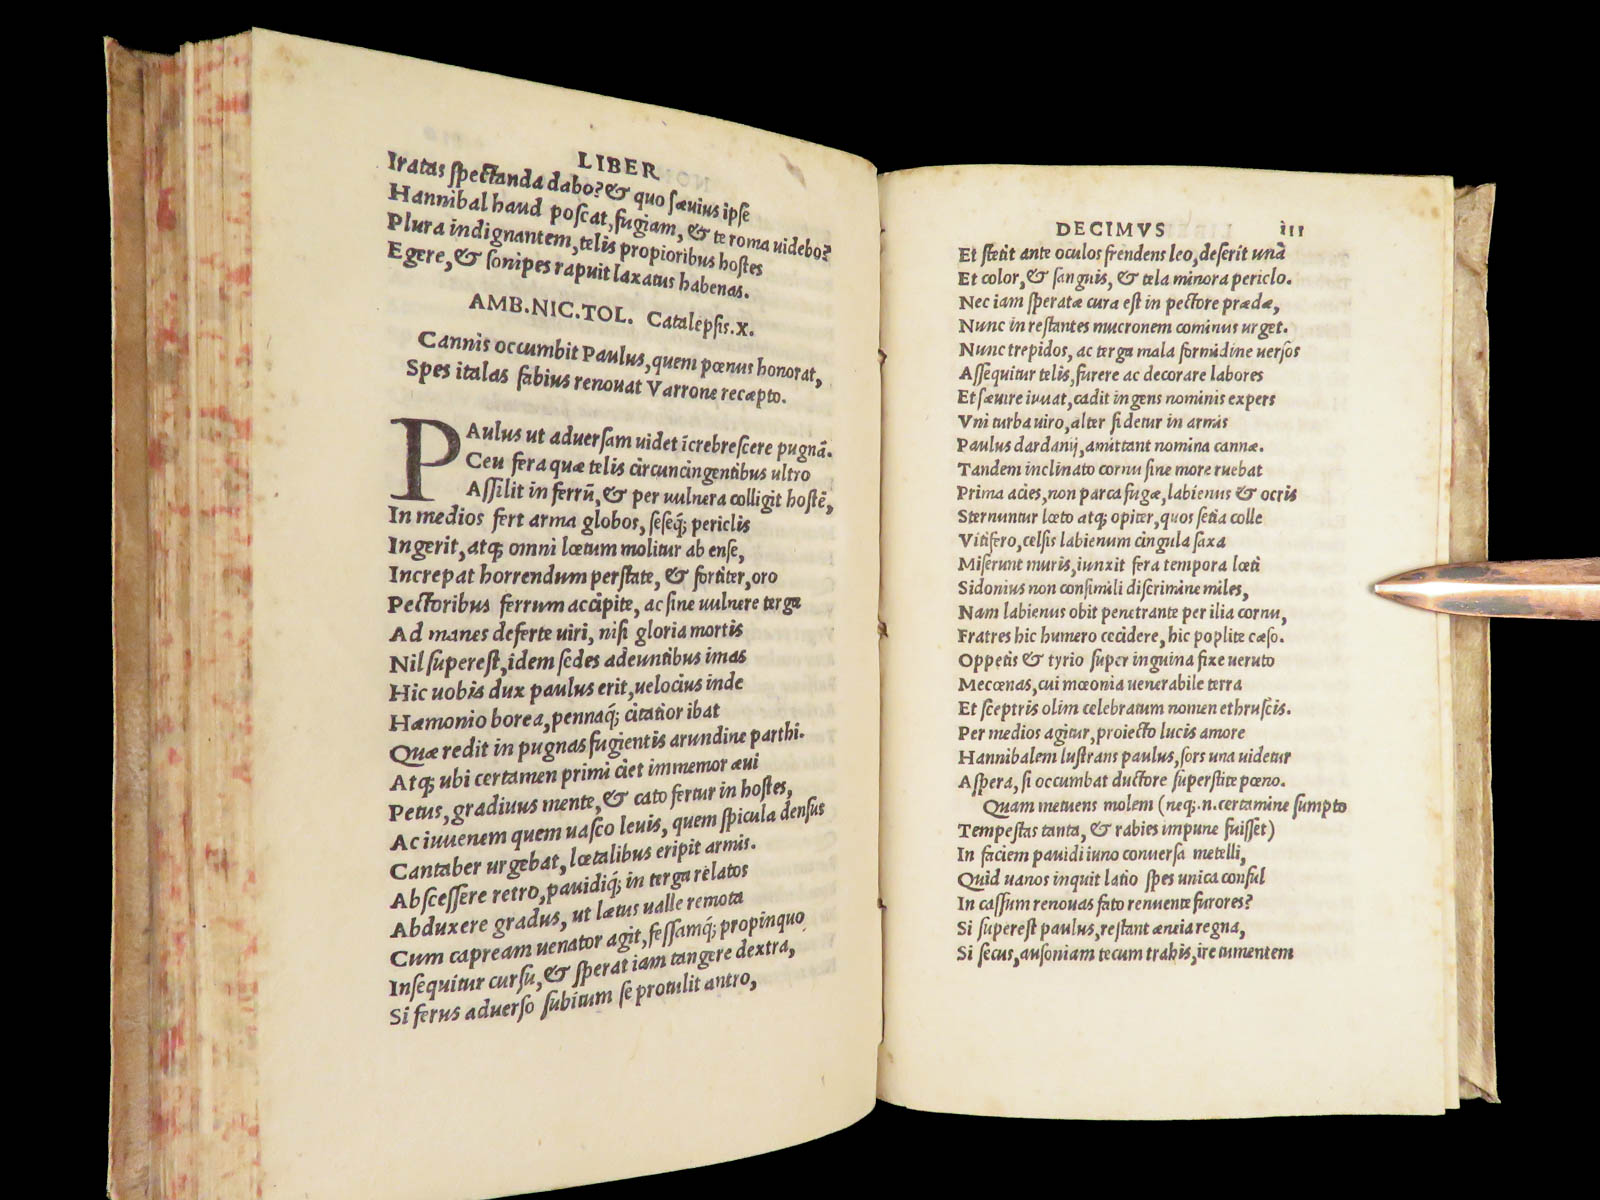 LIBER
Iratas spectanda dabo? & quo sæuius ipse
Hannibal haud poscat, fugiam, & te roma uidebo?
Plura indignantem, telis propioribus hostes
Egere, & sonipes rapuit laxatus habenas.
AMB.NIC.TOL. Catalepsis.X.
Cannis occumbit Paulus, quem pœnus honorat,
Spes italas fabius renouat Varrone recæpto.
PAulus ut aduersam uidet ĩcrebrescere pugnã.
Ceu fera quæ telis circuncingentibus ultro
Assilit in ferrũ, & per uulnera colligit hostẽ,
In medios fert arma globos, seseq; periclis
Ingerit, atq; omni lœtum molitur ab ense,
Increpat horrendum perstate, & fortiter, oro
Pectoribus ferrum accipite, ac sine uulnere terga
Ad manes deferte uiri, nisi gloria mortis
Nil superest, idem sedes adeuntibus imas
Hic uobis dux paulus erit, uelocius inde
Hæmonio borea, pennaq; citatior ibat
Quæ redit in pugnas fugientis arundine parthi.
Atq; ubi certamen primi ciet immemor æui
Petus, gradiuus mente, & cato fertur in hostes,
Ac iuuenem quem uasco leuis, quem spicula densus
Cantaber urgebat, lœtalibus eripit armis.
Abscessere retro, pauidiq; in terga relatos
Abduxere gradus, ut lætus ualle remota
Cum capream uenator agit, fessamq; propinquo
Insequitur cursu, & sperat iam tangere dextra,
Si ferus aduerso subitum se protulit antro,
DECIMVS 111
Et stetit ante oculos frendens leo, deserit unã
Et color, & sanguis, & tela minora periclo.
Nec iam speratæ cura est in pectore prædæ,
Nunc in restantes mucronem cominus urget.
Nunc trepidos, ac terga mala formidine uersos
Assequitur telis, furere ac decorare labores
Et sæuire iuuat, cadit ingens nominis expers
Vni turba uiro, alter si detur in armis
Paulus dardanij, amittant nomina cannæ.
Tandem inclinato cornu sine more ruebat
Prima acies, non parca fugæ, labienus & ocris
Sternuntur lœto atq; opiter, quos setia colle
Vitifero, celsis labienum cingula saxa
Miserunt muris, iunxit fera tempora lœti
Sidonius non consimili discrimine miles,
Nam labienus obit penetrante per ilia cornu,
Fratres hic humero cecidere, hic poplite cæso.
Oppetis & tyrio super inguina fixe ueruto
Mecœnas, cui mœonia uenerabile terra
Et sceptris olim celebratum nomen ethruscis.
Per medios agitur, proiecto lucis amore
Hannibalem lustrans paulus, sors una uidetur
Aspera, si occumbat ductore superstite pœno.
Quam metuens molem (neq;.n.certamine sumpto
Tempestas tanta, & rabies impune fuisset)
In faciem pauidi iuno conuersa metelli,
Quid uanos inquit latio spes unica consul
In cassum renouas fato renuente furores?
Si superest paulus, restant æneia regna,
Si secus, ausoniam tecum trahis, ire tumentem